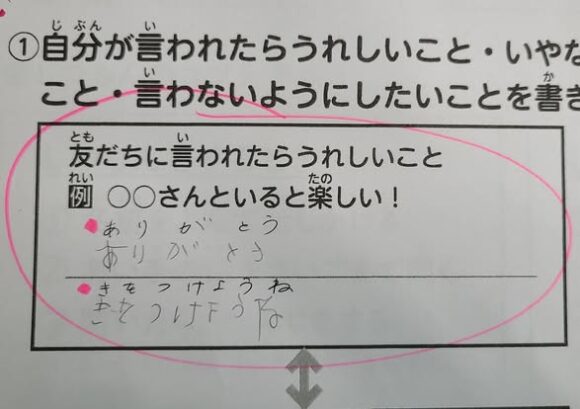 ①自分が言われたらうれしいこと・いやな
こと・言わないようにしたいことを書き
友だちに言われたらうれしいこと
例 ○○さんといると楽しい！
ありがとう
ありがとう
きをつけようね
きをつけようね